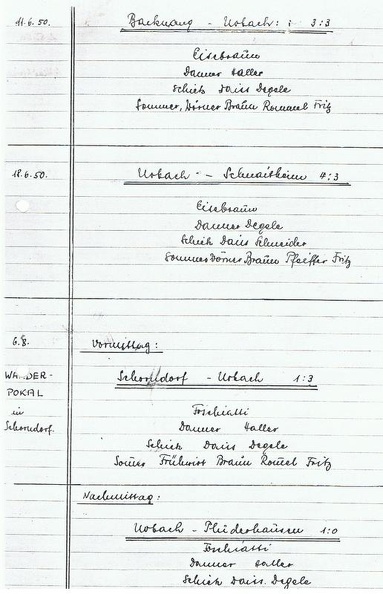 11.6.50. Backnang - Urbach: : 3:3
Eisebraun
Danner Haller
Schiek Dais Degele
Sommer, Dörner Braun Rommel Fritz
18.6.50. Urbach - Schnaitheim 4:3
Eisebraun
Danner Degele
Schiek Dais Schneider
Sommer Dörner Braun Pfeiffer Fritz
6.8. Vormittag:
WANDER-
POKAL
in
Schorndorf.
Schorndorf - Urbach 1:3
Danner Haller
Schiek Dais Degele
Frühwirt Braun Fritz
Nachmittag:
Urbach - Plüderhausen 1:0
Danner Haller
Schiek Dais Degele